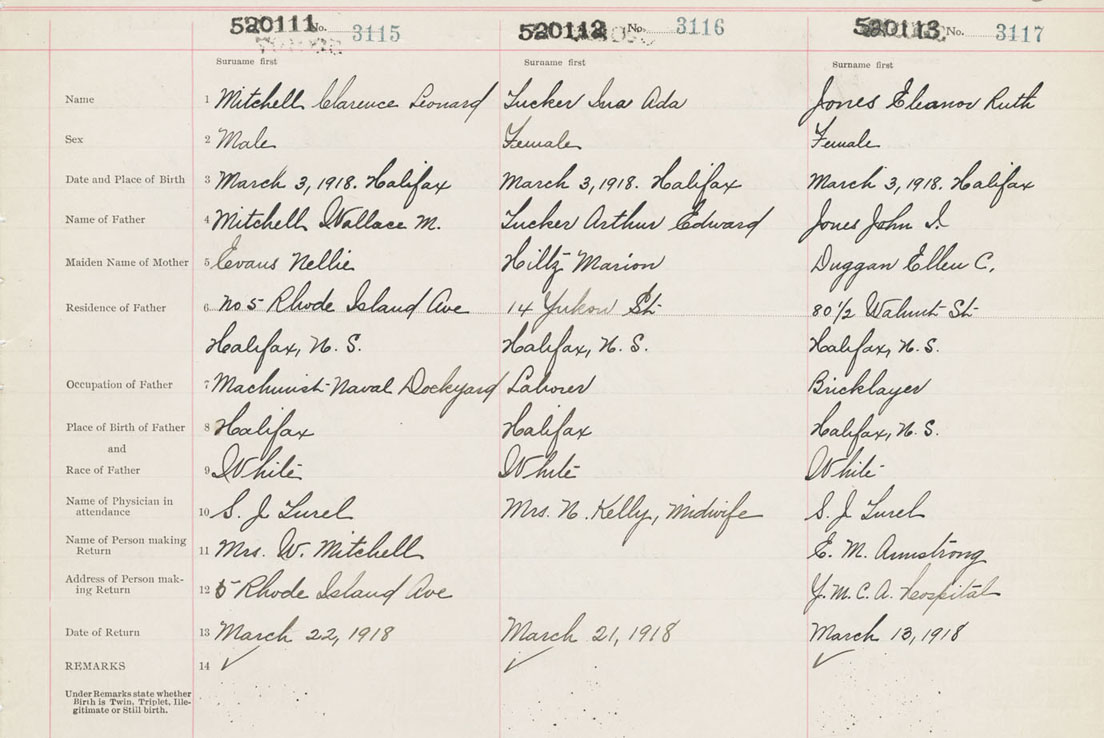 520111 No. 3115 520112 No. 3116 520113 No. 3117
Surname first Surname first Surname first
Name 1 Mitchell Clarence Leonard Tucker Ina Ada Jones Eleanor Ruth
Sex 2 Male Female Female
Date and Place of Birth 3 March 3, 1918. Halifax March 3, 1918. Halifax March 3, 1918. Halifax
Name of Father 4 Mitchell Wallace M. Tucker Arthur Edward Jones John
Maiden Name of Mother 5 Evans Nellie Hiltz Marion Duggan Ellen C.
Residence of Father 6 No 5 Rhode Island Ave 14 Yukon St. 80 1/2 Walnut St.
Halifax, N. S. Halifax, N. S. Halifax, N. S.
Occupation of Father 7 Machinist-Naval Dockyard Laborer Bricklayer
Place of Birth of Father 8 Halifax Halifax Halifax, N. S.
and
Race of Father 9 White White White
Name of Physician in
attendance 10 S. J. Mrs. N. Kelly, Midwife S. J.
Name of Person making
Return 11 Mrs. W. Mitchell E. M. Armstrong
Address of Person mak-
ing Return 12 5 Rhode Island Ave Y. M. C. A. Hospital
Date of Return 13 March 22, 1918 March 21, 1918 March 13, 1918
REMARKS 14
Under Remarks state whether
Birth is Twin, Triplet, Ille-
gitimate or Still birth.